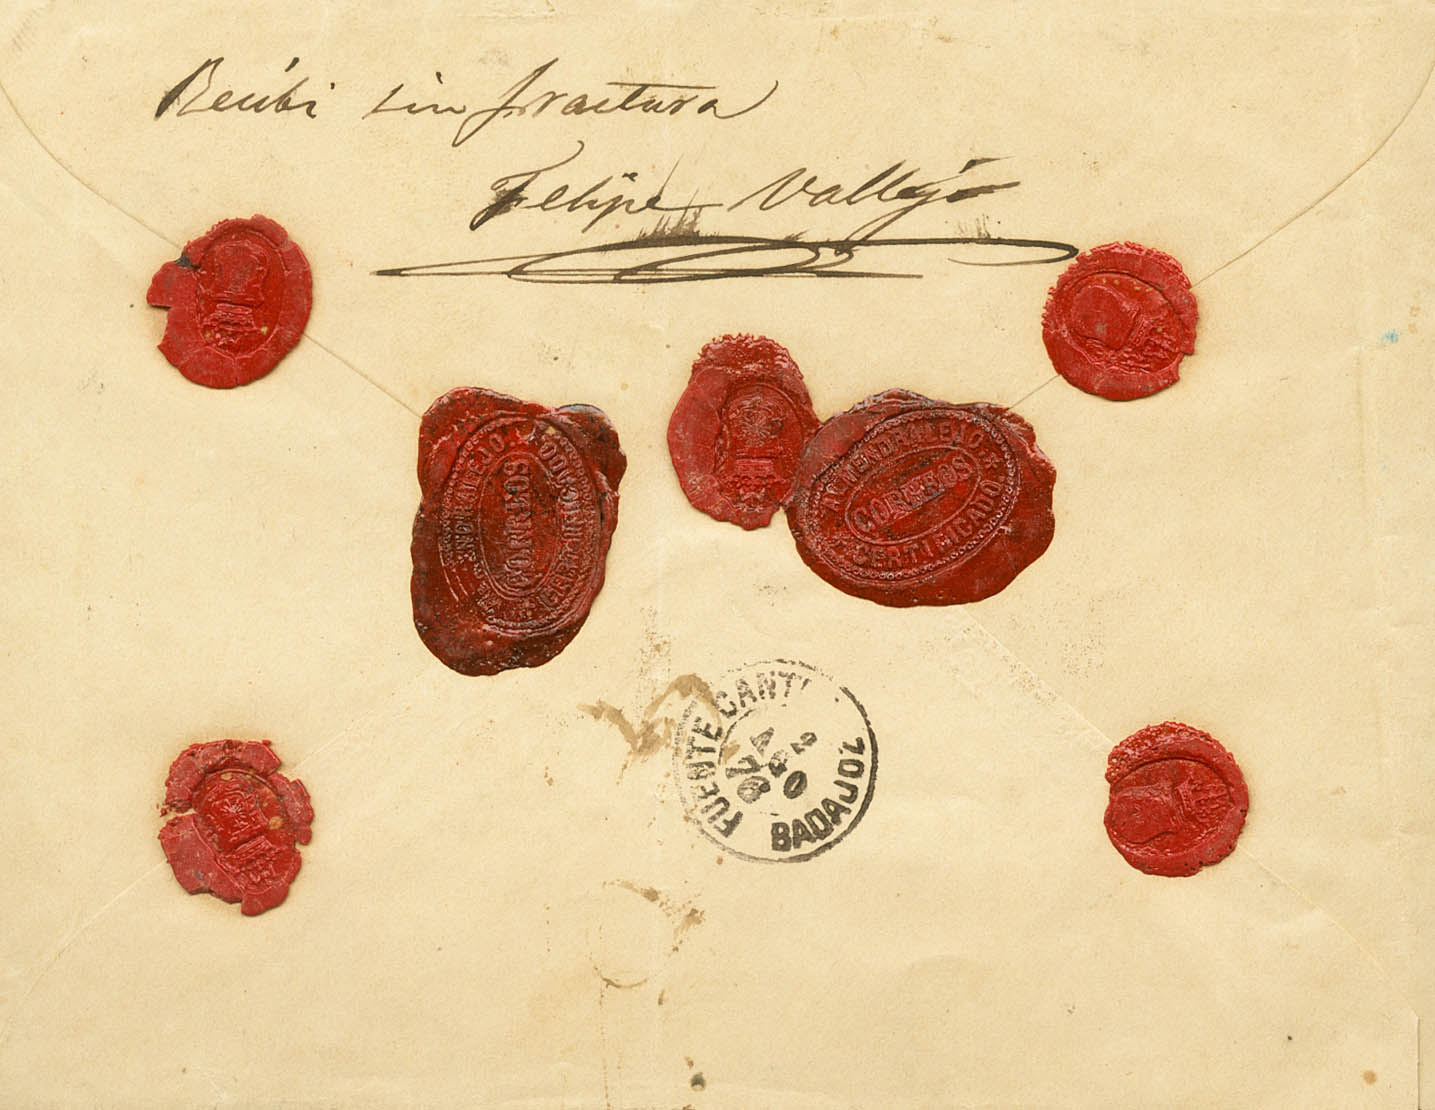 Recibi sin fractura
Felipe Vallejo
ALMENDRALEJO.
CERTIFICADO.
CORREOS
ALMENDRALEJO.
CORREOS
CERTIFICADO.
FUENTE CANT
BADAJOZ
20
76